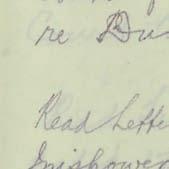 re Bus
Read Lette
Inishowen